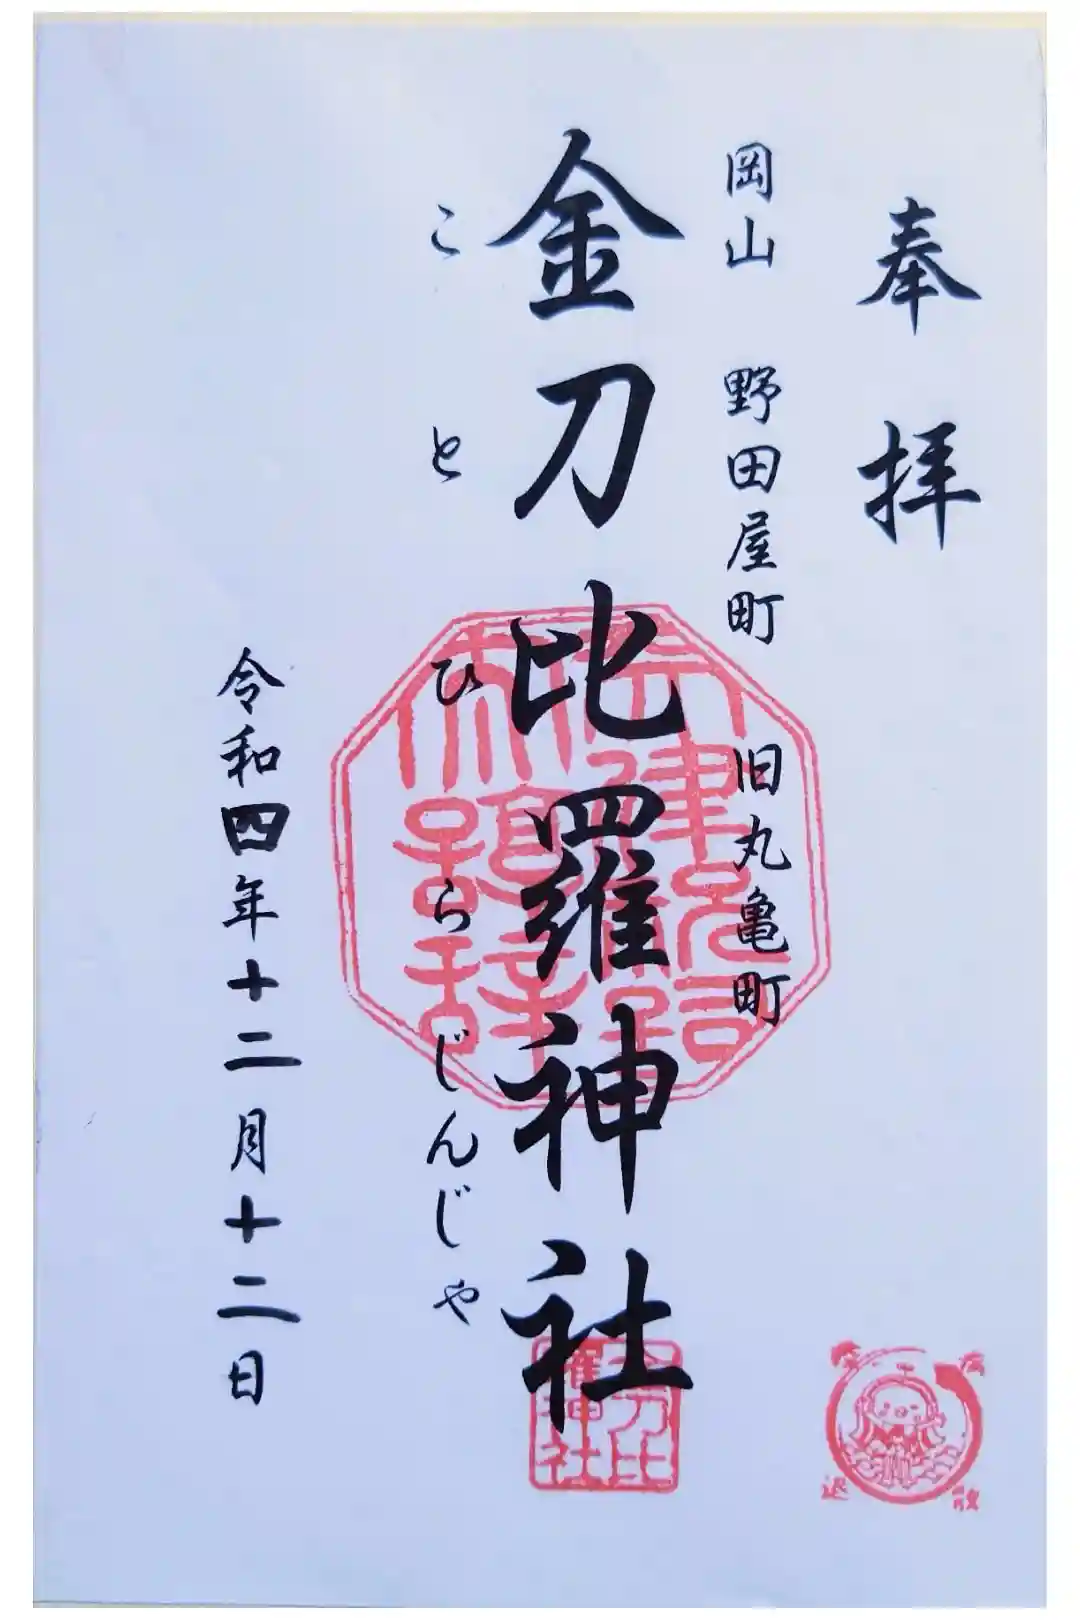 奉拝
岡山 野田屋町 旧丸亀町
金刀比羅神社
ことひらじんじゃ
令和四年十二月十二日
金刀比
羅神社